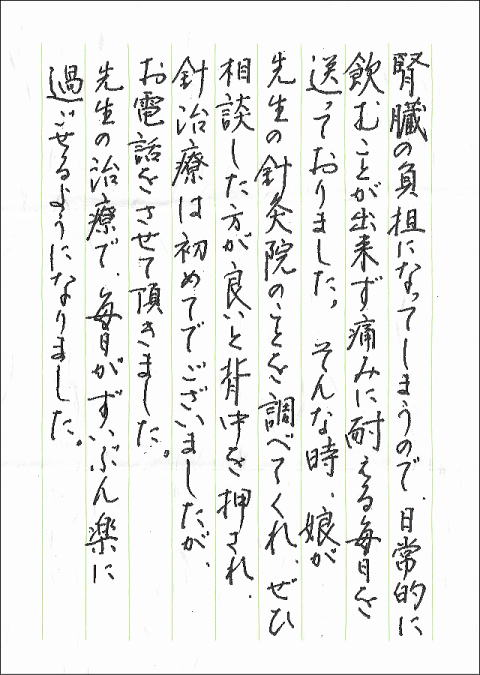 腎臓の負担になってしまうので、日常的に
飲むことが出来ず痛みに耐える毎日を
送っておりました。そんな時、娘が
先生の針灸院のことを調べてくれ、ぜひ
相談した方が良いと背中を押され、
針治療は初めてでございましたが、
お電話をさせて頂きました。
先生の治療で、毎日がずいぶん楽に
過ごせるようになりました。